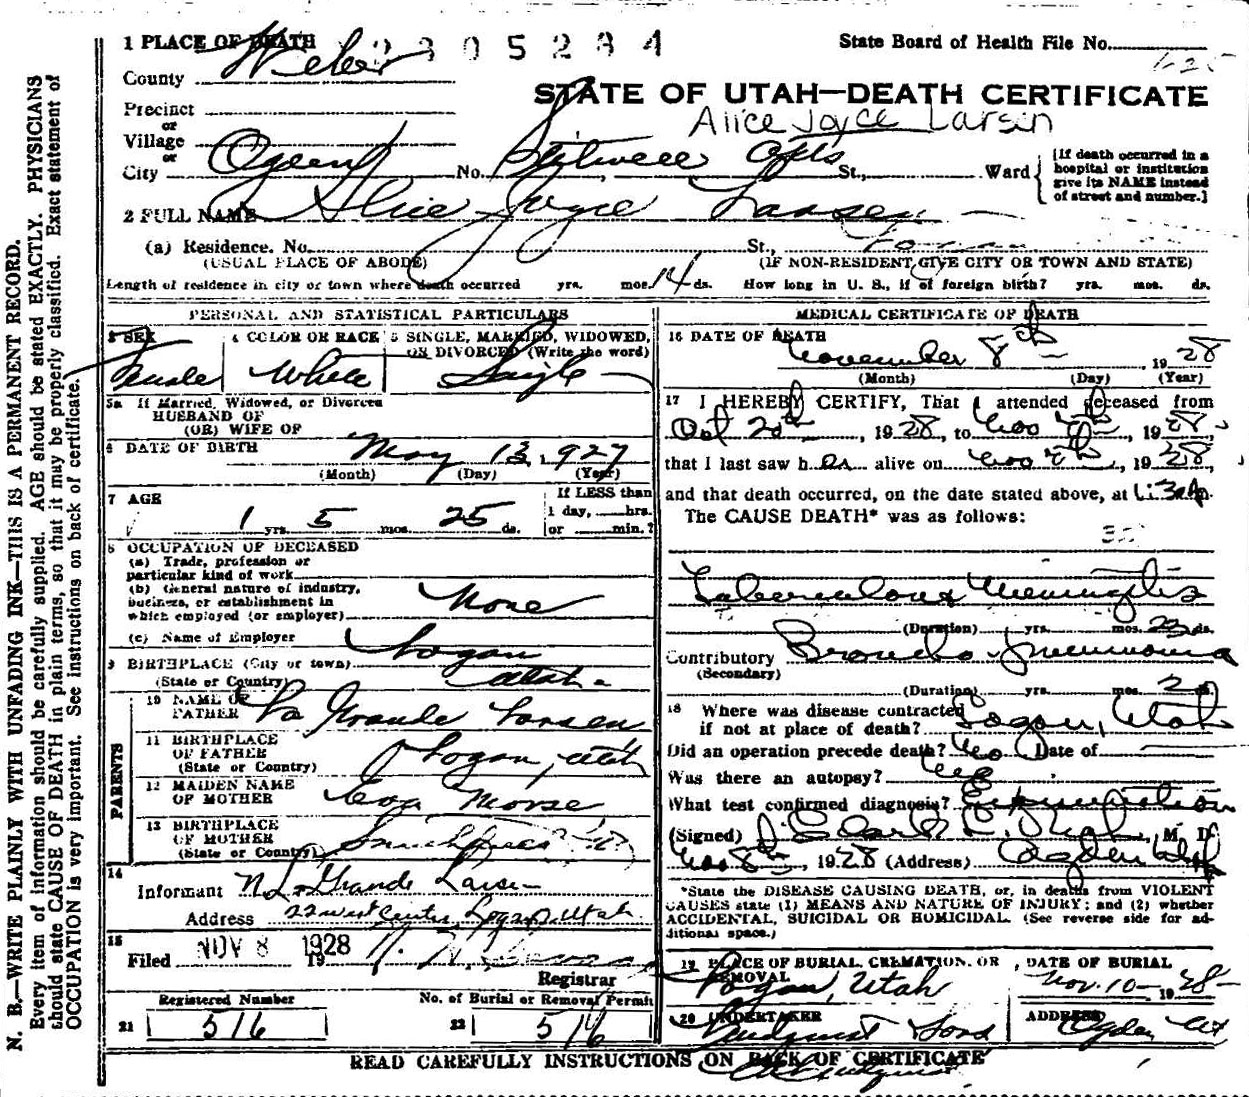 N. B.—WRITE PLAINLY WITH UNFADING INK—THIS IS A PERMANENT RECORD.
Every item of information should be carefully supplied. AGE should be stated EXACTLY. PHYSICIANS
should state CAUSE OF DEATH in plain terms, so that it may be properly classified. Exact statement of
OCCUPATION is very important. See instructions on back of certificate.
1 PLACE OF DEATH
State Board of Health File No.
County Weber
STATE OF UTAH—DEATH CERTIFICATE
Precinct
or
Alice Joyce Larsen
Village
or
City Ogden No. St., Ward
[If death occurred in a
hospital or institution
give its NAME instead
of street and number.]
2 FULL NAME Alice Joyce Larsen
(a) Residence. No. St., Logan
(USUAL PLACE OF ABODE) (IF NON-RESIDENT GIVE CITY OR TOWN AND STATE)
Length of residence in city or town where death occurred yrs. mos. 14 ds. How long in U. S., if of foreign birth? yrs. mos. ds.
PERSONAL AND STATISTICAL PARTICULARS
3 SEX 4 COLOR OR RACE 5 SINGLE, MARRIED, WIDOWED,
OR DIVORCED (Write the word)
Female White Single
5a If Married, Widowed, or Divorced
HUSBAND OF
(OR) WIFE OF
6 DATE OF BIRTH May 13, 1927
(Month) (Day) (Year)
7 AGE If LESS than
1 yrs. 5 mos. 25 ds. 1 day, hrs.
or min.?
8 OCCUPATION OF DECEASED
(a) Trade, profession or
particular kind of work
(b) General nature of industry,
business, or establishment in
which employed (or employer) None
(c) Name of Employer
9 BIRTHPLACE (City or town) Logan
(State or Country) Utah
PARENTS
10 NAME OF
FATHER La Grande Larsen
11 BIRTHPLACE
OF FATHER Logan, Utah
(State or Country)
12 MAIDEN NAME
OF MOTHER Eva Morse
13 BIRTHPLACE
OF MOTHER
(State or Country)
14
Informant N. LaGrande Larsen
Address Logan, Utah
15
Filed NOV 8 1928
19
Registrar
Registered Number No. of Burial or Removal Permit
21 516 22 516
MEDICAL CERTIFICATE OF DEATH
16 DATE OF DEATH
November 8th 1928
(Month) (Day) (Year)
17 I HEREBY CERTIFY, That I attended deceased from
Oct 20th, 1928, to Nov 8th, 1928,
that I last saw her alive on Nov 8th, 1928,
and that death occurred, on the date stated above, at
The CAUSE DEATH* was as follows:
Tuberculous Meningitis
(Duration) yrs. mos. ds.
Contributory Broncho-pneumonia
(Secondary)
(Duration) yrs. mos. 2 ds.
18 Where was disease contracted
if not at place of death? Logan, Utah
Did an operation precede death? No Date of
Was there an autopsy?
What test confirmed diagnosis?
(Signed) M. D.
Nov 8th, 1928 (Address) Ogden Utah
*State the DISEASE CAUSING DEATH, or, in deaths from VIOLENT
CAUSES state (1) MEANS AND NATURE OF INJURY; and (2) whether
ACCIDENTAL, SUICIDAL OR HOMICIDAL. (See reverse side for ad-
ditional space.)
19 PLACE OF BURIAL, CREMATION, OR DATE OF BURIAL
REMOVAL
Logan, Utah Nov. 10 1928
20 UNDERTAKER ADDRESS
Lindquist Sons Ogden Ut
READ CAREFULLY INSTRUCTIONS ON BACK OF CERTIFICATE